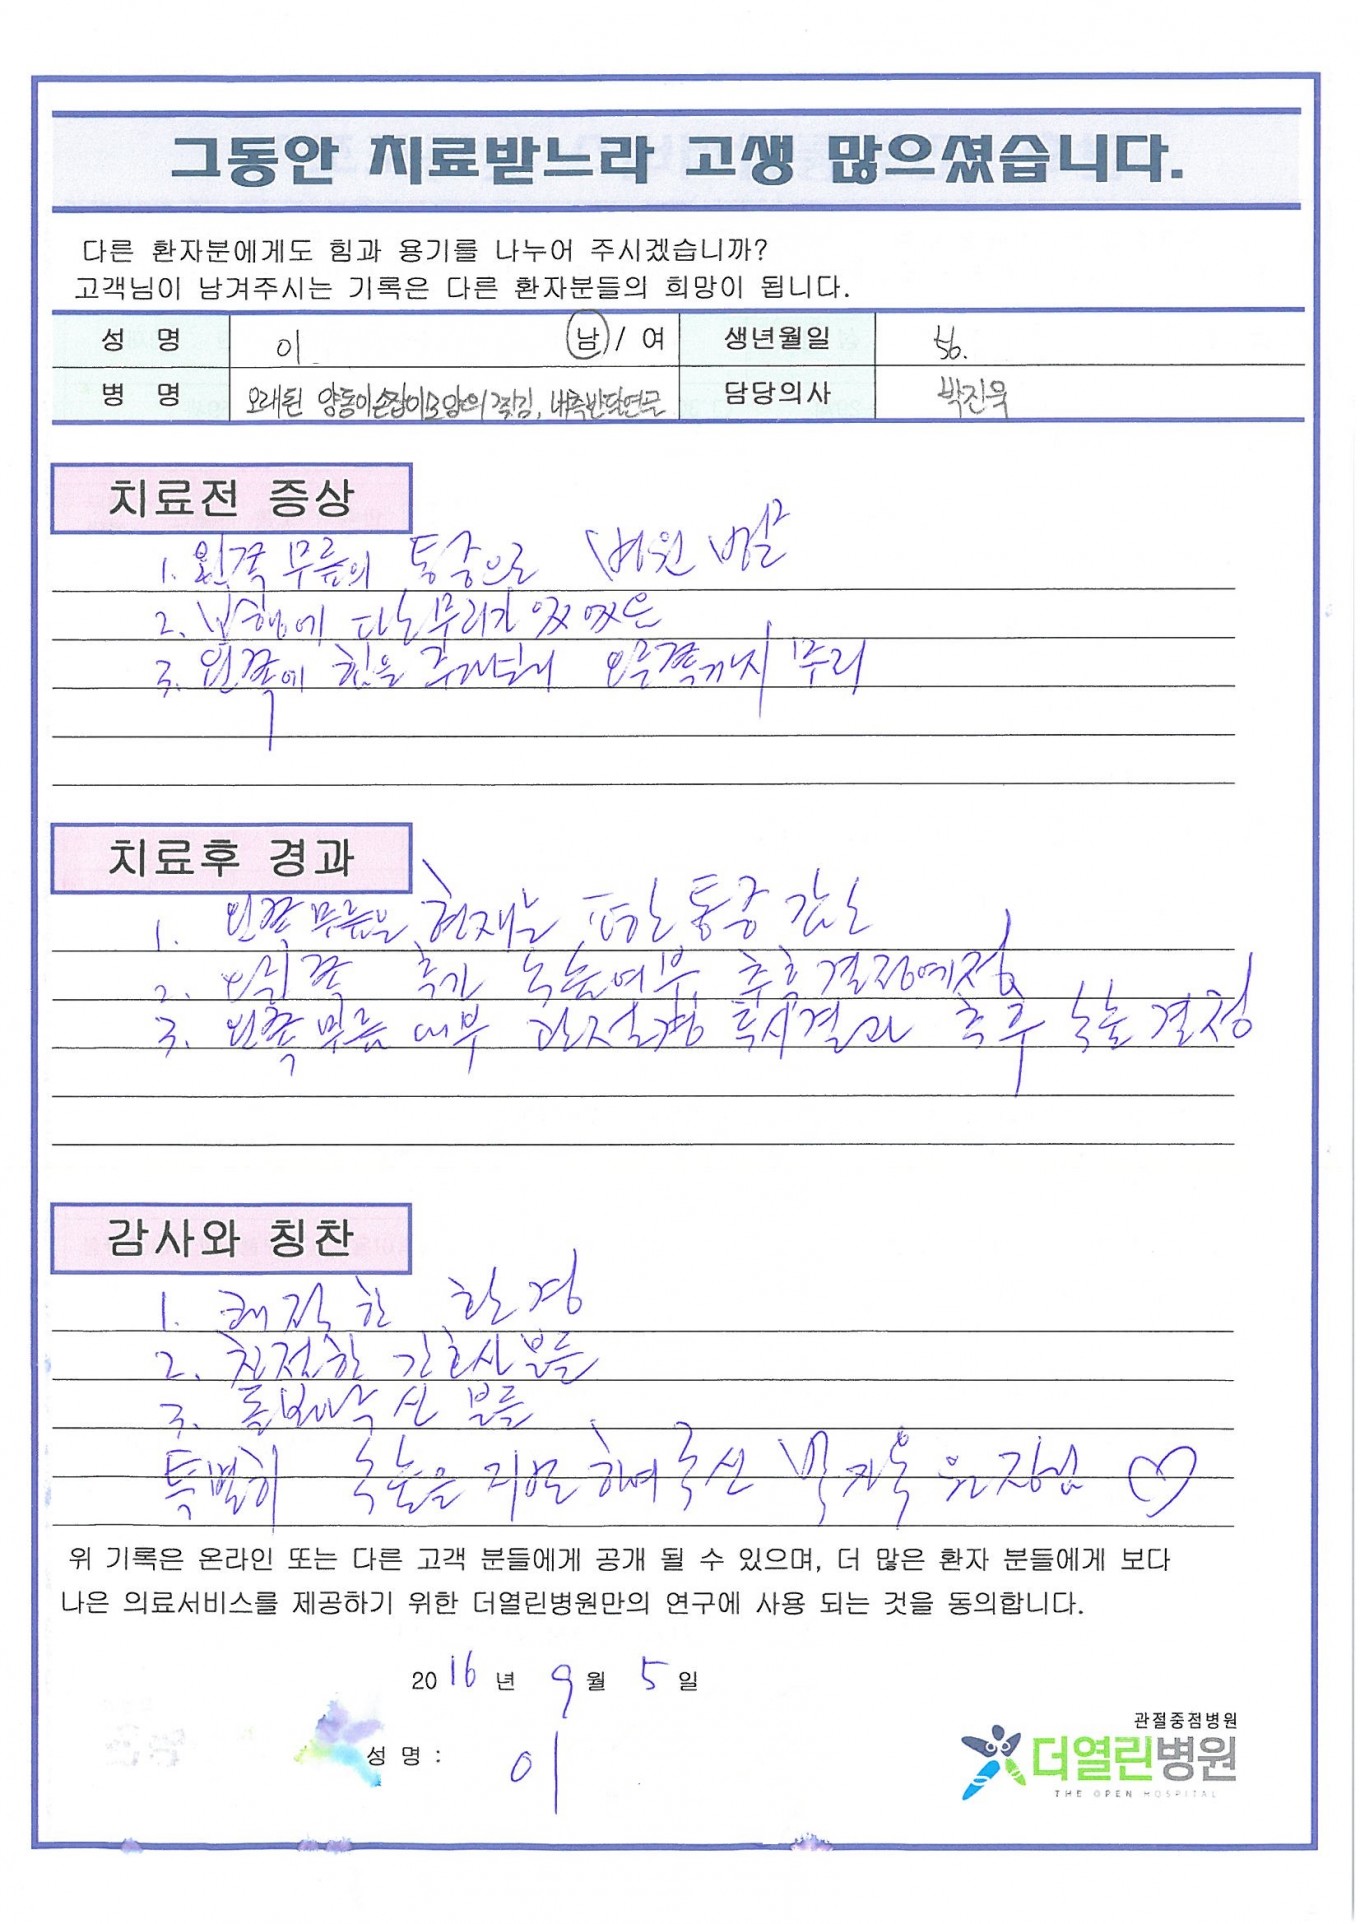 그동안 치료받느라 고생 많으셨습니다.
다른 환자분에게도 힘과 용기를 나누어 주시겠습니까?
고객님이 남겨주시는 기록은 다른 환자분들의 희망이 됩니다.
성 명 이 남 / 여 생년월일 56.
병 명 오래된 양동이손잡이모양의 찢김, 내측반달연골 담당의사 박진욱
치료전 증상
1. 왼쪽 무릎의 통증으로 병원 방문
2. 보행에 다소 무리가 있었음
3. 왼쪽에 힘을 주다보니 오른쪽까지 무리
치료후 경과
1. 왼쪽 무릎은 현재는 다소 통증 감소
2. 추가 수술여부 추후 결정예정
3. 왼쪽 무릎 내부 관절경 특시결과 추후 수술 결정
감사와 칭찬
1. 쾌적한 환경
2. 친절한 간호사분들
3. 돌봐주신 분들
특별히 수술을 집도하여주신 박진욱 원장님 ♡
위 기록은 온라인 또는 다른 고객 분들에게 공개 될 수 있으며, 더 많은 환자 분들에게 보다
나은 의료서비스를 제공하기 위한 더열린병원만의 연구에 사용 되는 것을 동의합니다.
2016 년 9 월 5 일
성 명 : 이
관절중점병원
더열린병원
THE OPEN HOSPITAL